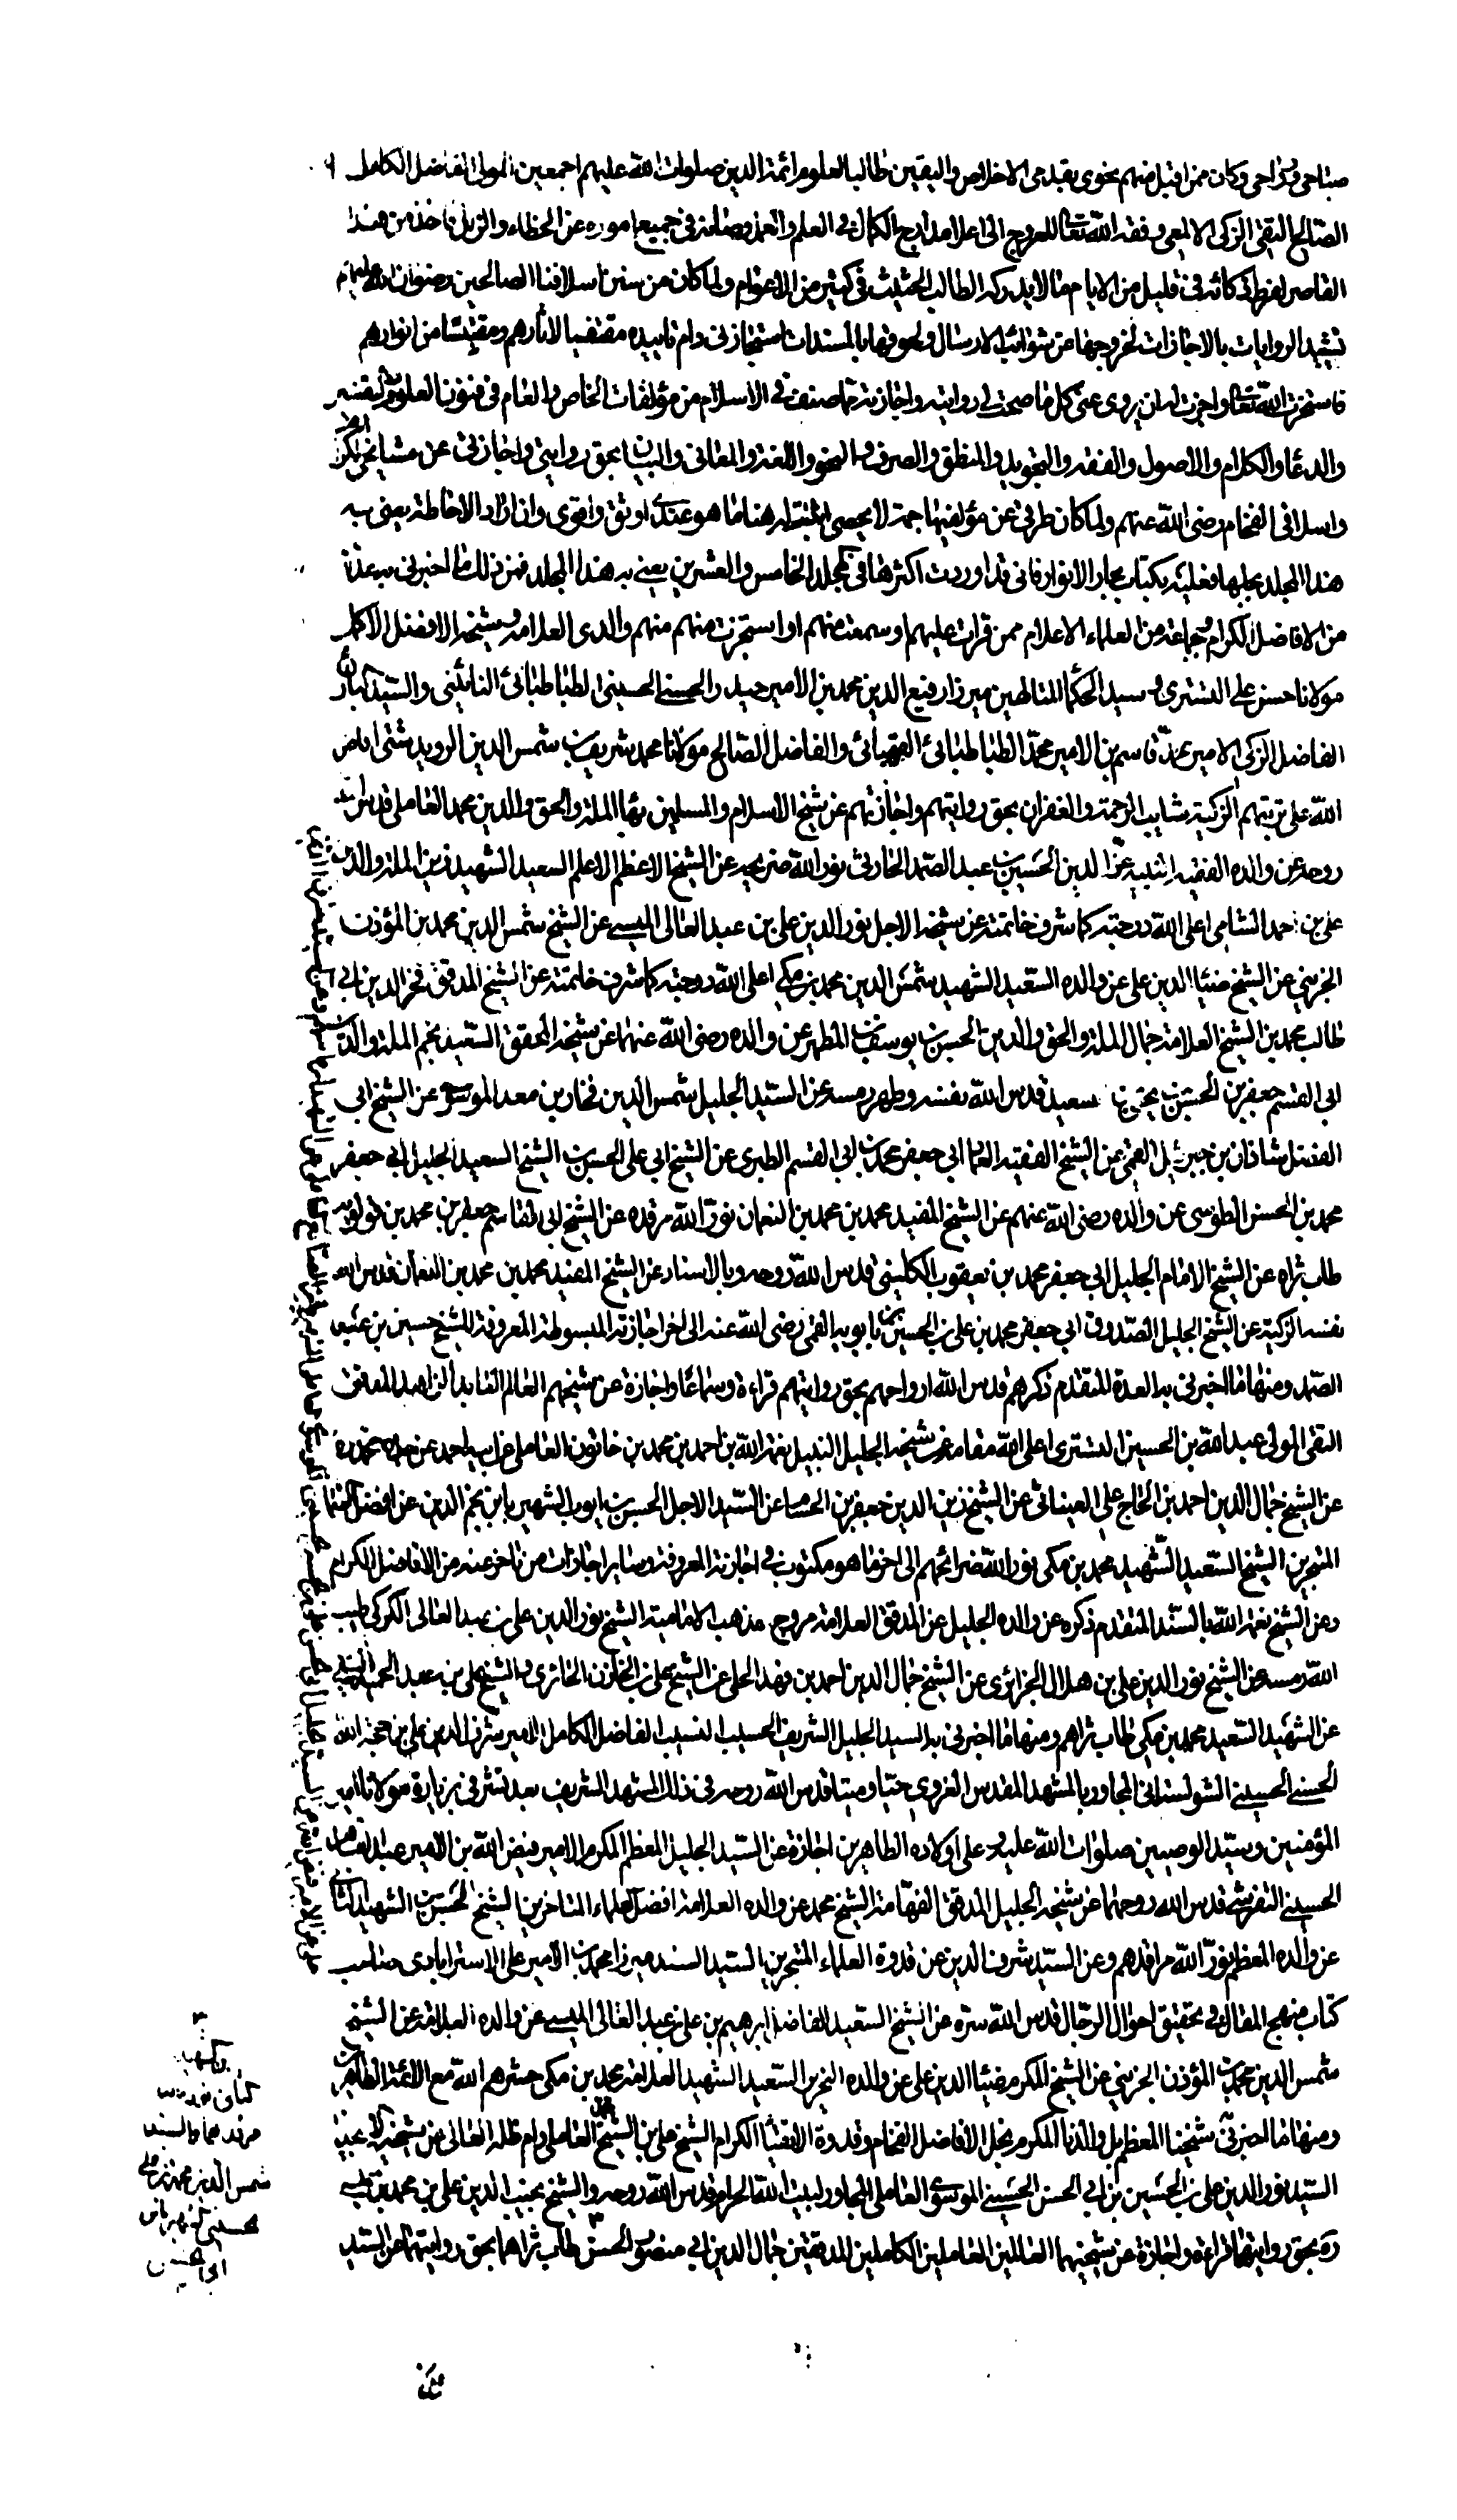 صباحي ورواحي وكان ممن اقبل منهم نحوي بقدمي الاخلاص واليقين طالبا لعلوم ائمة الدين صلوات الله عليهم اجمعين المولى الفاضل الكامل
الصالح التقي الزكي الالمعي وفقه الله تعا للعروج الى اعلا مدارج الكمال في العلم والعمل وصانه في جميع اموره عن الخطاء والزلل فاخذ من هذا
القاصر لفرط ذكائه في قليل من الايام ما لا يدركه الطالب الحثيث في كثير من الاعوام ولما كان من سنن اسلافنا الصالحين رضوان الله عليهم
تشييد الروايات بالاجازات لخروجها عن شوائب الارسال ولحوقها بالمسندات استجازني دام تاييده مقتفيا لاثارهم ومقتبسا من انوارهم
فاستخرت الله تعا واجزت له ان يروي عني كل ما صحت لي روايته واجازته مما صنف في الاسلام من مؤلفات الخاص والعام في فنون العلوم والتفسير
والدعا والكلام والاصول والفقه والتجويد والمنطق والصرف والنحو واللغة والمعاني والبيان بحق روايتي واجازتي عن مشايخي الكرام
واسلافي الفخام رضي الله عنهم ولما كان طرقي عن مؤلفيها جمة لا يحصى اثبتت له هنا ما هو عندي اوثق واقوى وان اراد الاحاطة يعني به
هذا المجلد بجلها فعليه بكتاب بحار الانوار فاني قد اوردت اكثرها في المجلد الخامس والعشرين يعني به هذا المجلد فمن ذلك ما اخبرني به عدة
من الافاضل الكرام وجماعة من العلماء الاعلام ممن قرات عليهم او سمعت منهم او استجزت منهم منهم والدي العلامة وشيخه الافضل الاكمل
مولانا حسن علي التستري وسيد الحكما المتالهين ميرزا رفيع الدين محمد بن الامير حيدر الحسني الحسيني الطباطبائي النائيني والسيد
الفاضل الزكي الامير محمد قاسم بن الامير محمد الطباطبائي القهبائي والفاضل الصالح مولانا محمد شريف بن شمس الدين الرويدشتي افاض
الله على تربتهم الزكية شابيب الرحمة والغفران بحق روايتهم واجازتهم عن شيخ الاسلام والمسلمين بهاء الملة والحق والدين محمد العاملي قدس الله
روحه عن والده الفقيه النبيه عز الدين الحسين بن عبد الصمد الحارثي نور الله ضريحه عن الشيخ الاعظم الاعلم السعيد الشهيد زين الملة والدين
علي بن احمد الشامي اعلى الله درجته كما شرف خاتمته عن شيخه الاجل نور الدين علي بن عبد العالي الميسي عن الشيخ شمس الدين محمد بن المؤذن
الجزيني عن الشيخ ضياء الدين علي عن والده السعيد الشهيد شمس الدين محمد بن مكي اعلى الله درجته كما شرف خاتمته عن الشيخ المدقق فخر الدين ابي
طالب محمد بن الشيخ العلامة جمال الملة والحق والدين الحسن بن يوسف بن المطهر عن والده رضي الله عنهما عن شيخه المحقق السعيد نجم الملة والدين
ابي القسم جعفر بن الحسن بن يحيى بن سعيد قدس الله نفسه وطهر رمسه عن السيد الجليل شمس الدين فخار بن معد الموسوي عن الشيخ ابي
الفضل شاذان بن جبرئيل القمي عن الشيخ الفقيه العماد ابي جعفر محمد بن ابي القسم الطبري عن الشيخ ابي علي الحسن بن الشيخ السعيد الجليل ابي جعفر
محمد بن الحسن الطوسي عن والده رضي الله عنهم عن الشيخ المفيد محمد بن محمد بن النعمان نور الله مرقده عن الشيخ ابي القاسم جعفر بن محمد بن قولويه
طاب ثراه عن الشيخ الامام الجليل ابي جعفر محمد بن يعقوب الكليني قدس الله روحه وبالاسناد عن الشيخ المفيد محمد بن محمد بن النعمان قدس الله
نفسه الزكية عن الشيخ الجليل الصدوق ابي جعفر محمد بن علي بن الحسين بن بابويه القمي رضي الله عنه الى اخر اجازته المبسوطة المعروفة للشيخ حسين بن عبد
الصمد ومنها ما اخبرني به العدة المتقدم ذكرهم قدس الله ارواحهم بحق روايتهم قراءة وسماعا واجازة عن شيخهم العالم العابد الزاهد المدقق
التقي المولى عبد الله بن الحسين التستري اعلى الله مقامه عن شيخه الجليل النبيل نعمة الله بن احمد بن محمد بن خاتون العاملي عن ابيه احمد عن جده محمد ره
عن الشيخ جمال الدين احمد بن الحاج علي العيناثي عن الشيخ زين الدين جعفر بن الحسام عن السيد الاجل الحسن بن ايوب الشهير بابن نجم الدين عن افضل العلماء
المتبحرين الشيخ السعيد الشهيد محمد بن مكي نور الله ضرائحهم الى اخر ما هو مكتوب في اجازته المعروفة وساير اجازات من تاخر عنه من الافاضل الكرام
وعن الشيخ نعمة الله بالسند المتقدم ذكره عن والده الجليل عن المدقق العلامة مروج مذهب الامامية الشيخ نور الدين علي بن عبد العالي الكركي طيب
الله رمسه عن الشيخ نور الدين علي بن هلال الجزائري عن الشيخ جمال الدين احمد بن فهد الحلي عن الشيخ علي بن الخازن الحائري والشيخ علي بن عبد الحميد
عن الشهيد السعيد محمد بن مكي طاب ثراهم ومنها ما اخبرني به السيد الجليل الشريف الحسيب النسيب الفاضل الكامل الامير شرف الدين علي بن حجة الله
الحسني الحسيني الشولستاني المجاور بالمشهد المقدس الغروي حيا وميتا قدس الله روحه في ذلك المشهد الشريف بعد تشرفي بزيارة مولانا امير
المؤمنين وسيد الوصيين صلوات الله عليه وعلى اولاده الطاهرين اجازة عن السيد الجليل المعظم المكرم الامير فيض الله بن الامير عبد القاهر
الحسيني التفرشي قدس الله روحهما عن شيخه الجليل المدقق الفهامة الشيخ محمد عن والده العلامة افضل العلماء المتاخرين الشيخ الحسن بن الشهيد الثاني
عن والده المعظم نور الله مراقدهم وعن السيد شرف الدين عن قدوة العلماء المتبحرين السيد السند ميرزا محمد بن الامير علي الاسترابادي صاحب
كتاب منهج المقال في تحقيق احوال الرجال قدس الله سره عن الشيخ السعيد الفاضل ابرهيم بن علي بن عبد العالي الميسي عن والده العلامة عن الشيخ
شمس الدين محمد بن المؤذن الجزيني عن الشيخ المكرم ضياء الدين علي عن والده النحرير السعيد الشهيد العلامة محمد بن مكي حشرهم الله مع الائمة الطاهرين
ومنها ما اخبرني شيخنا المعظم بل والدنا المكرم نجل الافاضل الفخام وقدوة الاتقياء الكرام الشيخ علي بن الشيخ محمد العاملي دام ظله العالي عن شيخيه
السيد نور الدين علي بن الحسين بن ابي الحسن الحسيني الموسوي العاملي المجاور لبيت الله الحرام قدس الله روحه والشيخ نجيب الدين علي بن محمد بن مكي
ره بحق روايتهما قراءة واجازة عن شيخيهما العالمين العاملين الكاملين المدققين جمال الدين ابي منصور الحسن طاب ثراهما بحق روايتهما عن السيد
شمس الدين محمد